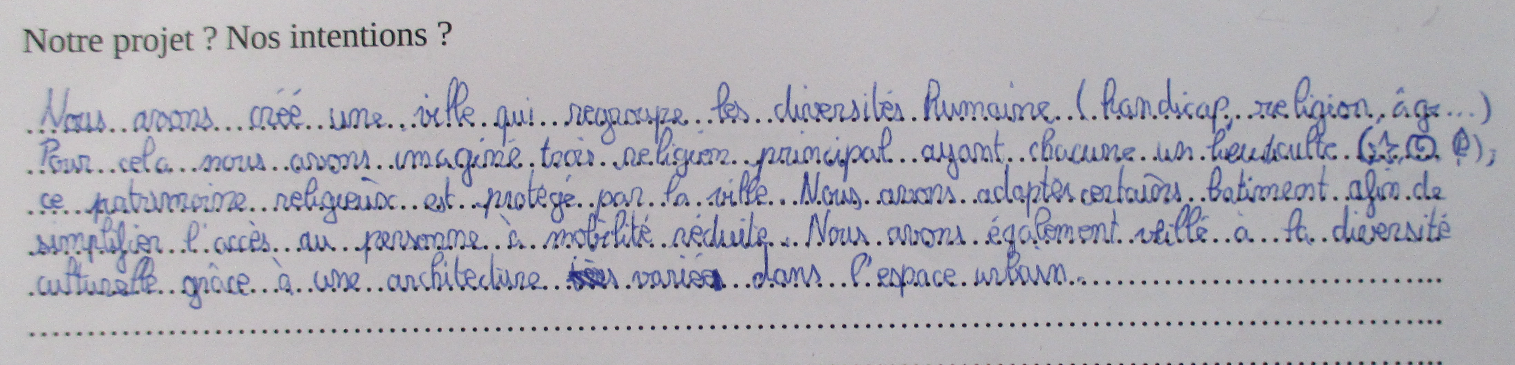 Notre projet ? Nos intentions ?
Nous avons créé une ville qui regroupe les diversités humaine (handicap, religion, âge...)
Pour cela nous avons imaginé trois religion principal ayant chacune un lieu culte
ce patrimoine religieux est protégé par la ville. Nous avons adapter certains batiment afin de
simplifier l'accès au personne à mobilité réduite. Nous avons également veillé à la diversité
culturelle grâce à une architecture très variée dans l'espace urbain.